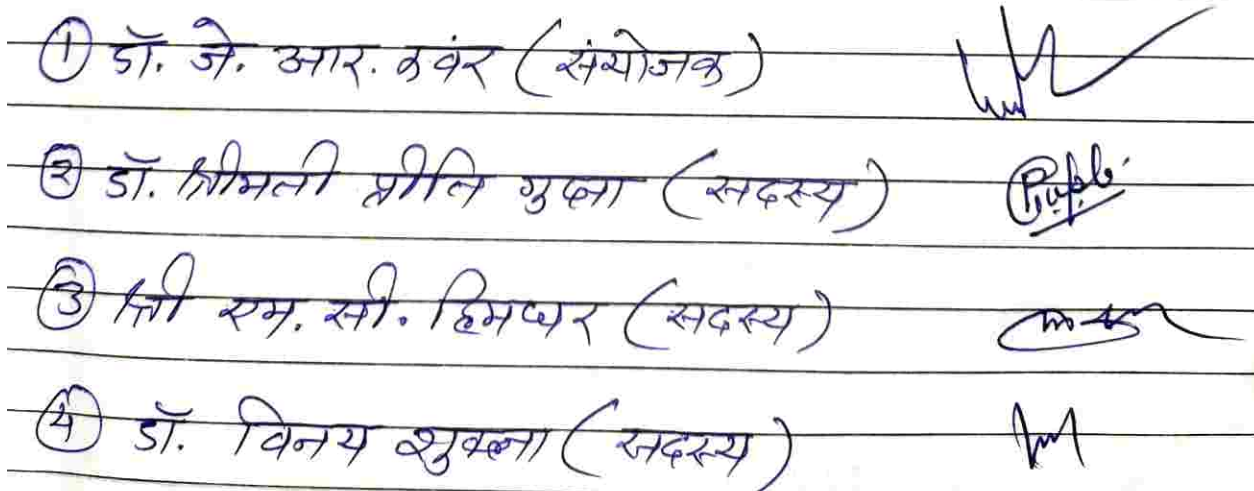 ① डॉ. जे. आर. कवंर (संयोजक)
② डॉ. श्रीमती प्रीति गुप्ता (सदस्य)
③ श्री एम. सी. हिमधर (सदस्य)
④ डॉ. विनय शुक्ला (सदस्य)